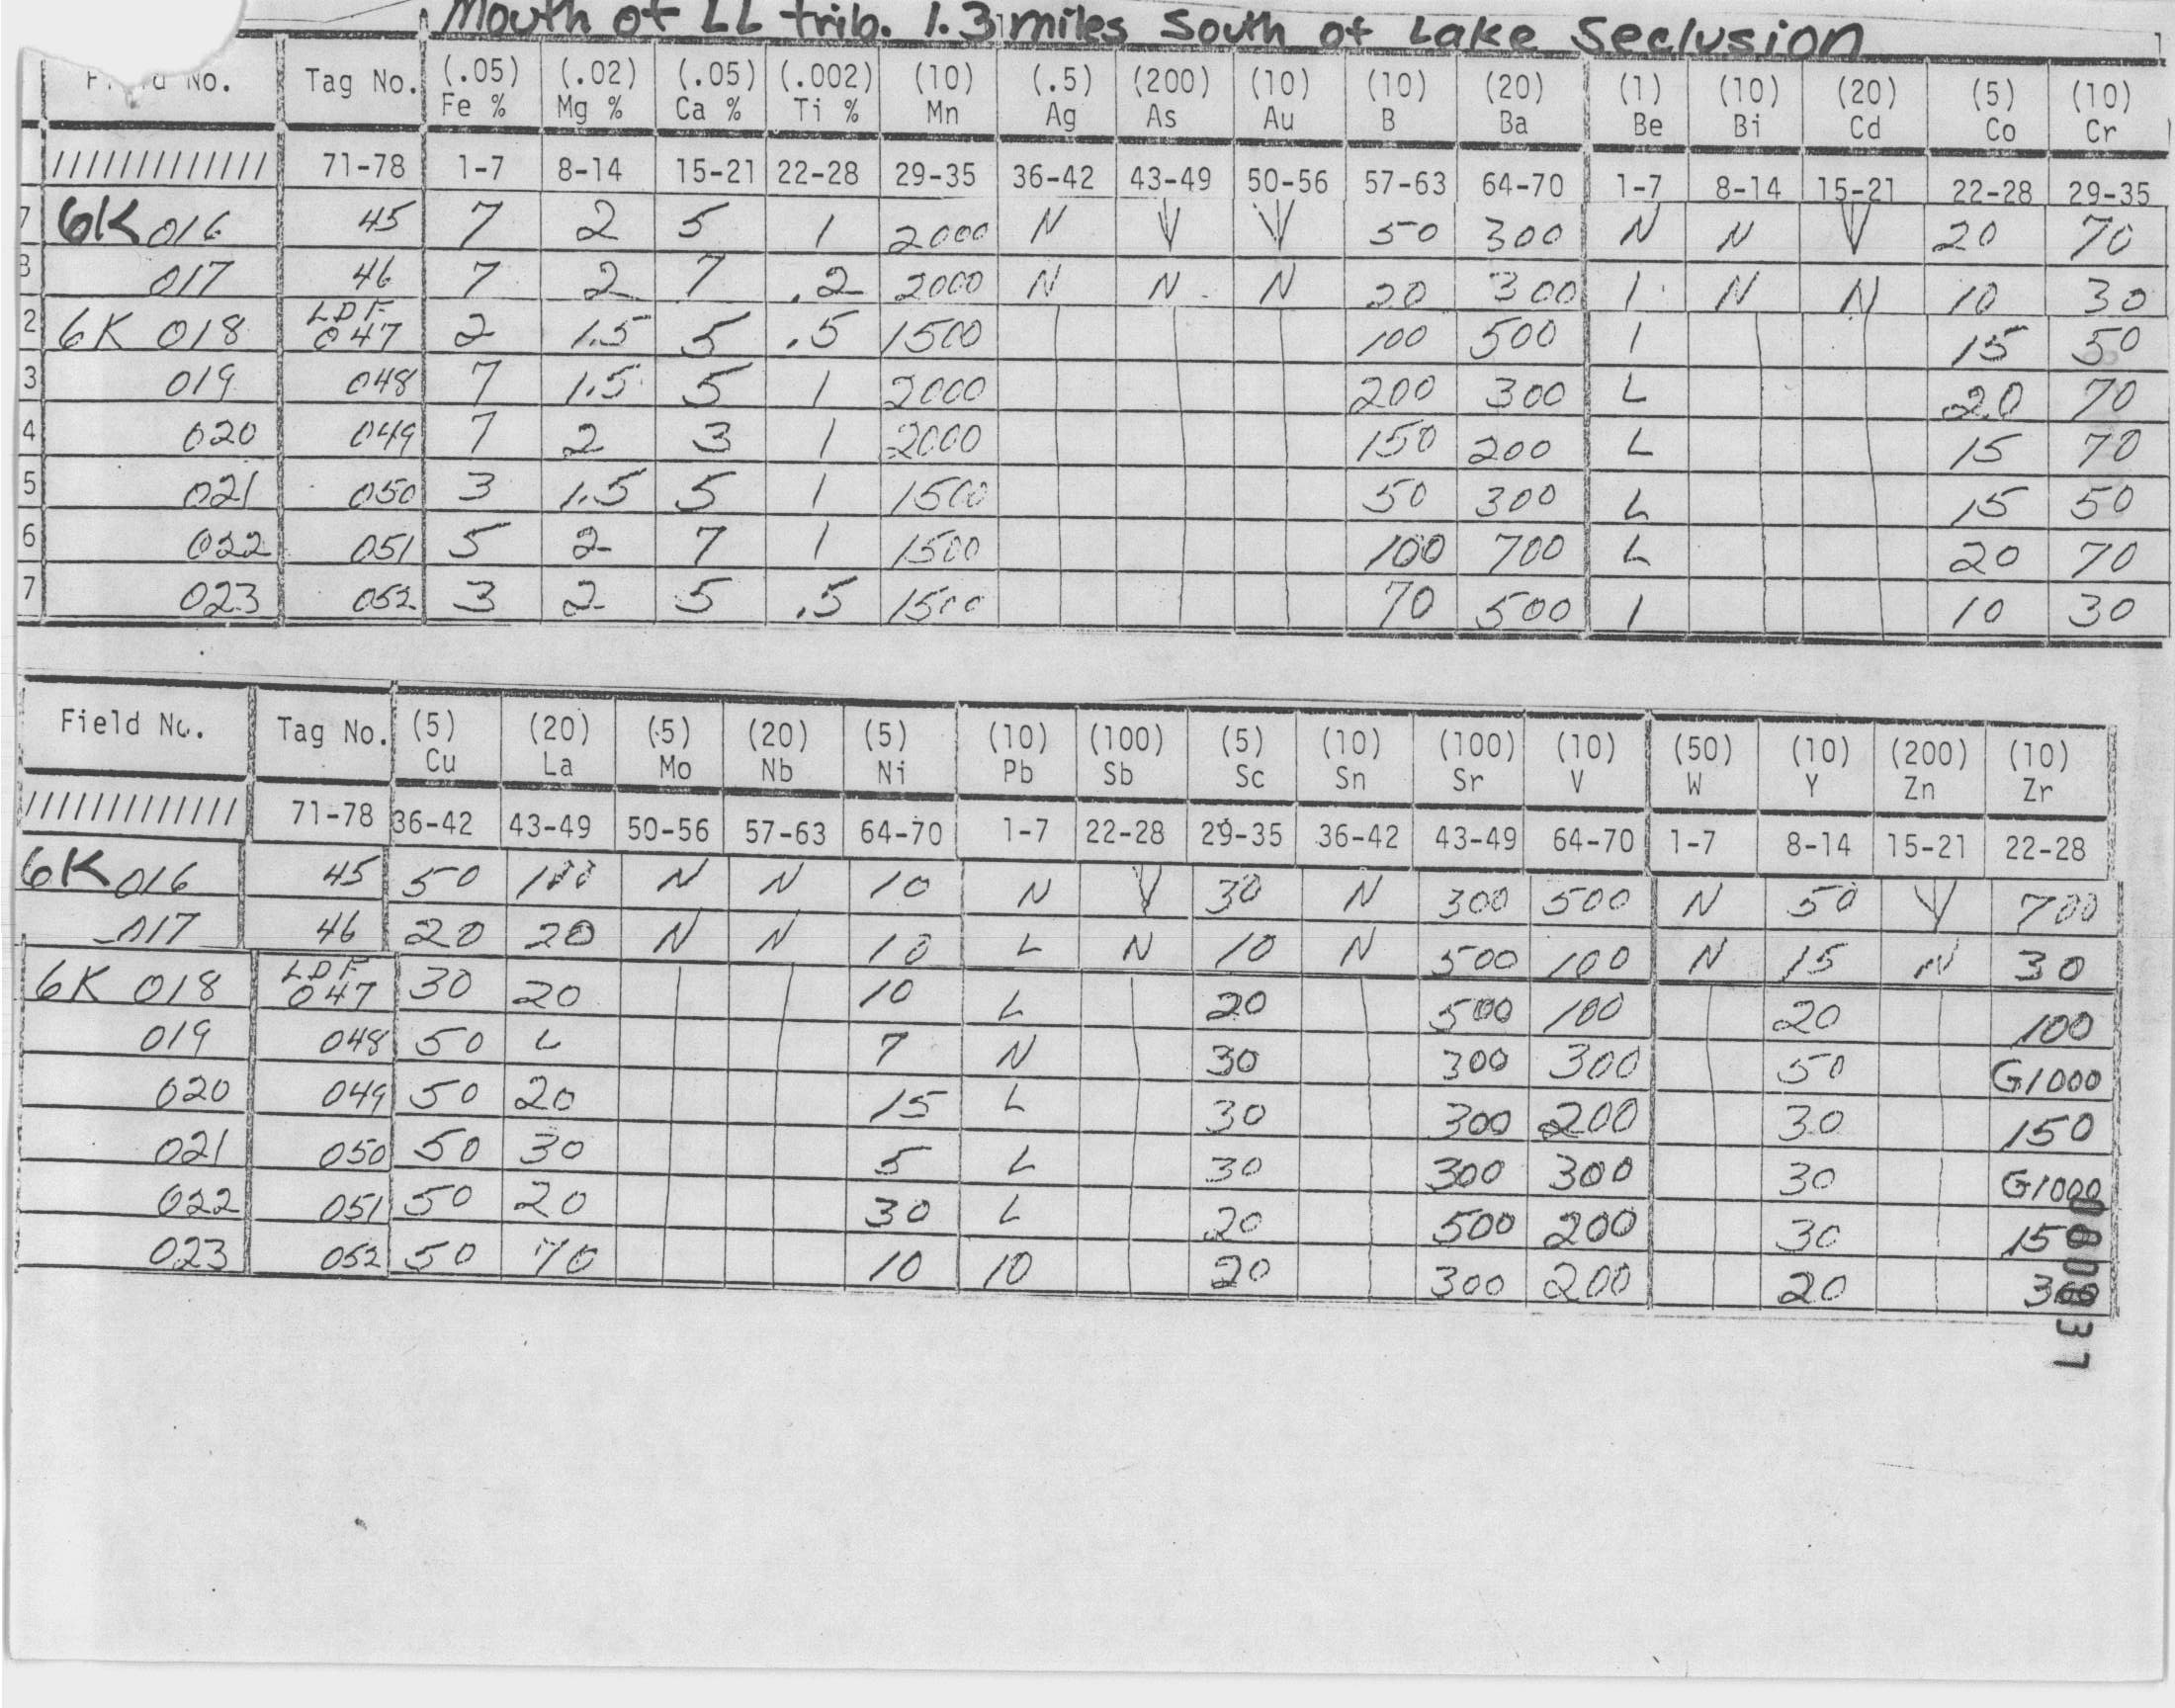 Mouth of LL trib. 1.3 miles South of Lake Seclusion
No. Tag No. (.05) Fe % (.02) Mg % (.05) Ca % (.002) Ti % (10) Mn (.5) Ag (200) As (10) Au (10) B (20) Ba (1) Be (10) Bi (20) Cd (5) Co (10) Cr
///////////// 71-78 1-7 8-14 15-21 22-28 29-35 36-42 43-49 50-56 57-63 64-70 1-7 8-14 15-21 22-28 29-35
7 6K 016 45 7 2 5 1 2000 N 50 300 N N 20 70
3 017 46 7 2 7 .2 2000 N N N 20 300 1 N N 10 30
2 6K 018 LDF 047 2 1.5 5 .5 1500 100 500 1 15 50
3 019 048 7 1.5 5 1 2000 200 300 L 20 70
4 020 049 7 2 3 1 2000 150 200 L 15 70
5 021 050 3 1.5 5 1 1500 50 300 L 15 50
6 022 051 5 2 7 1 1500 100 700 L 20 70
7 023 052 3 2 5 .5 1500 70 500 1 10 30
Field No. Tag No. (5) Cu (20) La (5) Mo (20) Nb (5) Ni (10) Pb (100) Sb (5) Sc (10) Sn (100) Sr (10) V (50) W (10) Y (200) Zn (10) Zr
///////////// 71-78 36-42 43-49 50-56 57-63 64-70 1-7 22-28 29-35 36-42 43-49 64-70 1-7 8-14 15-21 22-28
6K 016 45 50 100 N N 10 N 30 N 300 500 N 50 700
017 46 20 20 N N 10 L N 10 N 500 100 N 15 N 30
6K 018 LDF 047 30 20 10 L 20 500 100 20 100
019 048 50 L 7 N 30 300 300 50 G1000
020 049 50 20 15 L 30 300 200 30 150
021 050 50 30 5 L 30 300 300 30 G1000
022 051 50 20 30 L 20 500 200 30 150
023 052 50 70 10 10 20 300 200 20